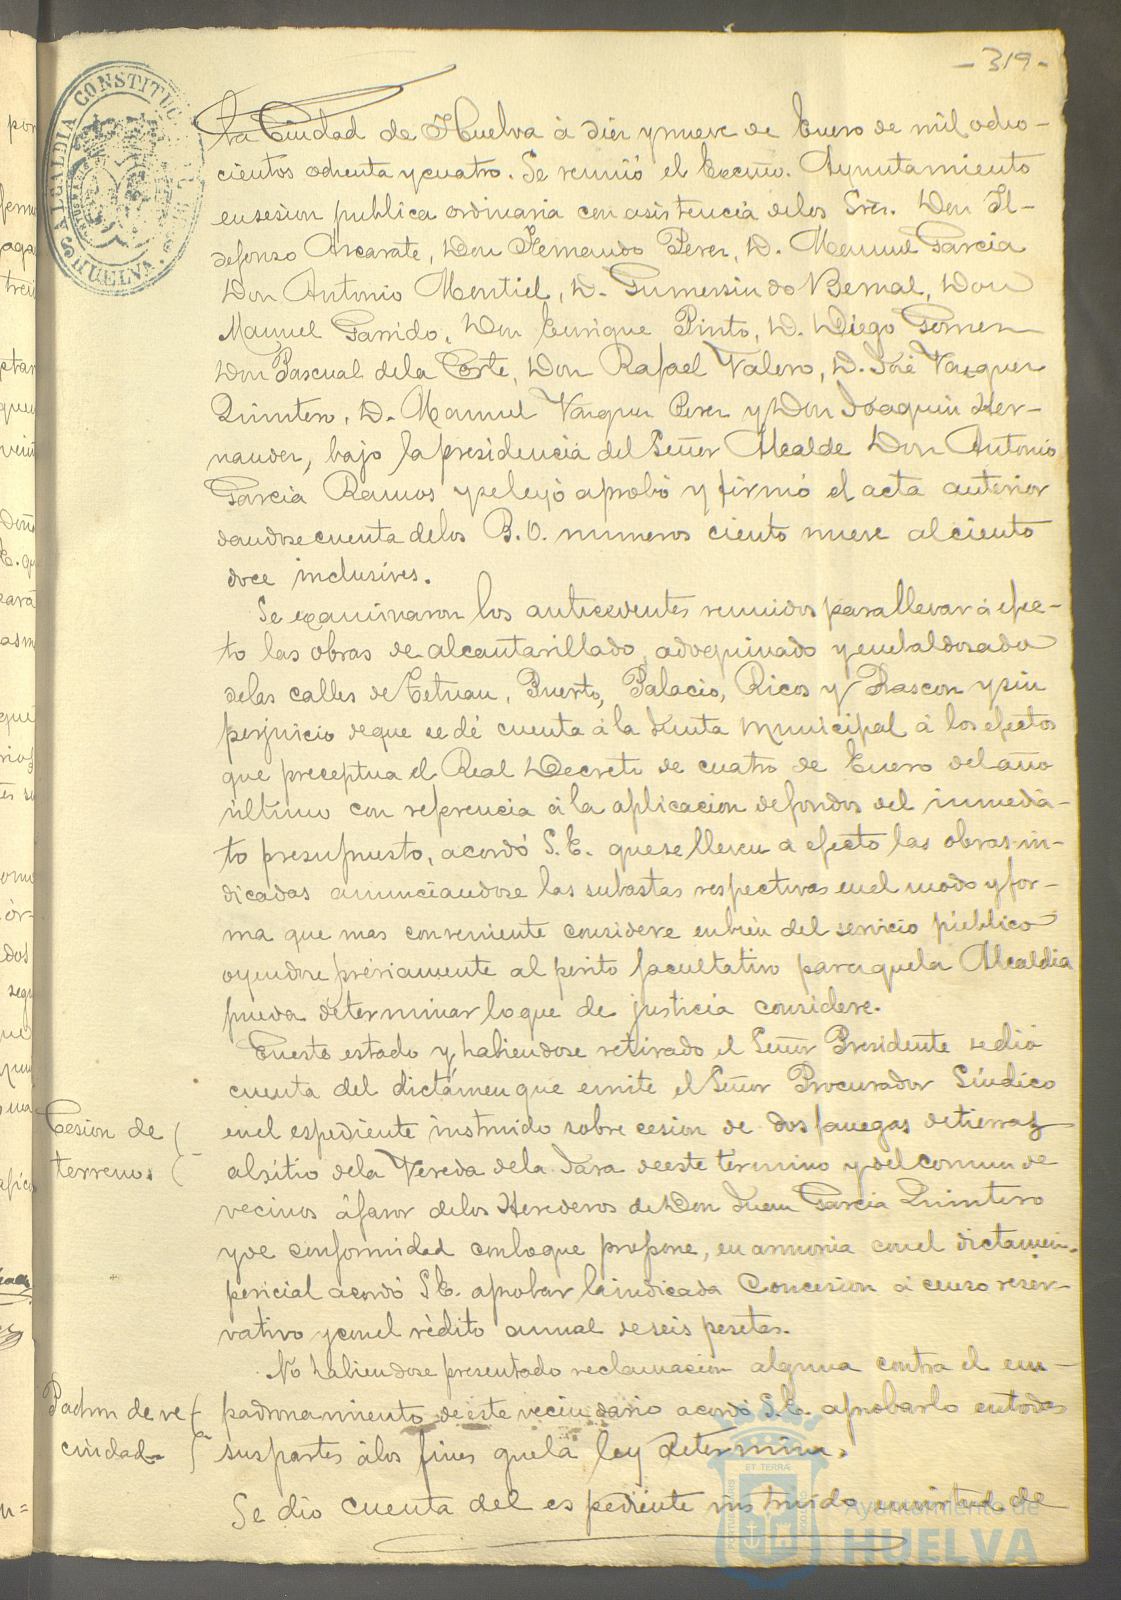 - 319 -
ALCALDIA CONSTITUC
HUELVA.
La Ciudad de Huelva á diez y nueve de Enero de mil ocho-
cientos ochenta y cuatro. Se reunió el Excmo. Ayuntamiento
en sesion publica ordinaria con asistencia de los Sres. Don Il-
defonso Azcarate, Don Fernando Perez, D. Manuel Garcia
Don Antonio Montiel, D. Gumersindo Bernal, Don
Manuel Garrido, Don Enrique Pinto, D. Diego Gomez
Don Pascual de la Corte, Don Rafael Valero, D. José Vazquez
Quintero, D. Manuel Vazquez Perez y Don Joaquin Her-
nandez, bajo la presidencia del Señor Alcalde Don Antonio
Garcia Ramos y se leyó aprobó y firmó el acta anterior
dandose cuenta de los B. O. numeros ciento nueve al ciento
doce inclusives.
Se examinaron los antecedentes reunidos para llevar á efec-
to las obras de alcantarillado, adoquinado y embaldosado
de las calles de Tetuan, Puerto, Palacio, Ricos y Rascon y sin
perjuicio de que se dé cuenta á la Junta Municipal á los efectos
que preceptua el Real Decreto de cuatro de Enero del año
ultimo con referencia á la aplicacion de fondos del inmedia-
to presupuesto, acordó S. E. que se lleven a efecto las obras in-
dicadas anunciandose las subastas respectivas en el modo y for-
ma que mas conveniente considere en bien del servicio público
oyendose préviamente al perito facultativo para que la Alcaldia
pueda determinar lo que de justicia considere.
En este estado y habiendose retirado el Señor Presidente se dió
cuenta del dictámen que emite el Señor Procurador Síndico
Cesion de
terrenos
en el espediente instruido sobre cesion de dos fanegas de tierras
al sitio de la Vereda de la Jara de este termino y del comun de
vecinos á favor de los Herederos de Don Juan Garcia Quintero
y de conformidad con lo que propone, en armonia con el dictamen
pericial acordó S. E. aprobar la indicada Concesion á censo reser-
vativo y con el rédito anual de seis pesetas.
No habiendose presentado reclamacion alguna contra el em-
Padron de ve
cindad
padronamiento de este vecindario acordó S. E. aprobarlo en todas
sus partes á los fines que la ley determina.
Se dio cuenta del espediente instruido en virtud de
Ayuntamiento de
HUELVA